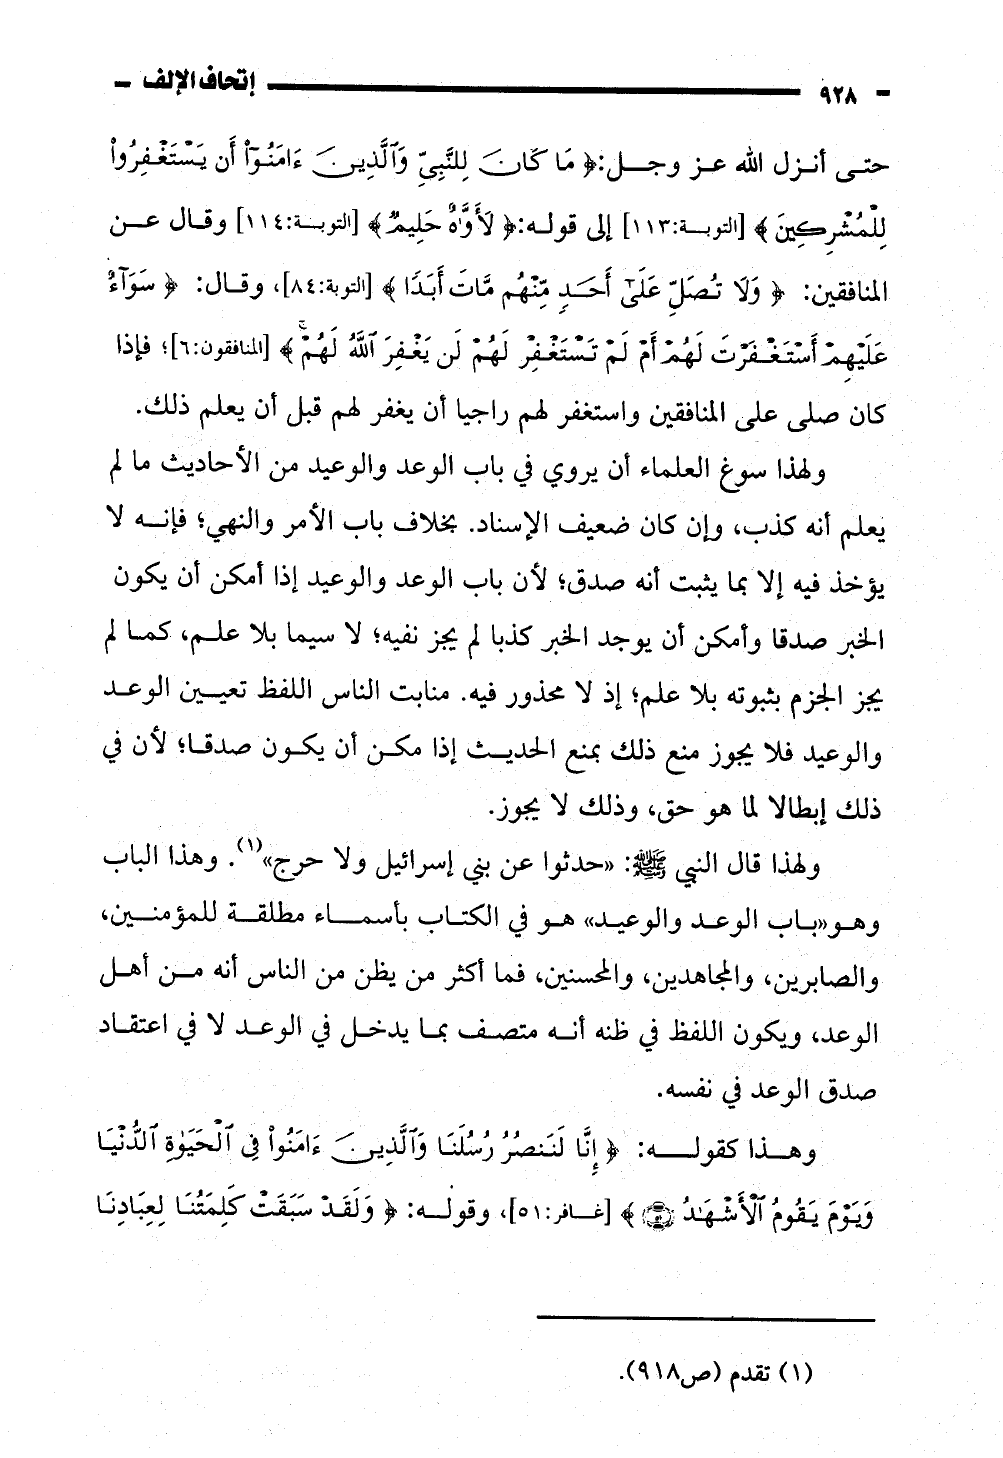 ٩٢٨ إتحاف الإلف
حتى أنزل الله عز وجل:﴿ مَا كَانَ لِلنَّبِيِّ وَٱلَّذِينَ ءَامَنُوٓا۟ أَن يَسْتَغْفِرُوا۟
لِلْمُشْرِكِينَ ﴾ [التوبة:١١٣] إلى قوله:﴿ لَأَوَّٰهٌ حَلِيمٌ ﴾ [التوبة:١١٤] وقال عن
المنافقين: ﴿ وَلَا تُصَلِّ عَلَىٰٓ أَحَدٍ مِّنْهُم مَّاتَ أَبَدًا ﴾ [التوبة:٨٤]، وقال: ﴿ سَوَآءٌ
عَلَيْهِمْ أَسْتَغْفَرْتَ لَهُمْ أَمْ لَمْ تَسْتَغْفِرْ لَهُمْ لَن يَغْفِرَ ٱللَّهُ لَهُمْ ۚ ﴾ [المنافقون:٦]؛ فإذا
كان صلى على المنافقين واستغفر لهم راجيا أن يغفر لهم قبل أن يعلم ذلك.
ولهذا سوغ العلماء أن يروي في باب الوعد والوعيد من الأحاديث ما لم
يعلم أنه كذب، وإن كان ضعيف الإسناد. بخلاف باب الأمر والنهي؛ فإنه لا
يؤخذ فيه إلا بما يثبت أنه صدق؛ لأن باب الوعد والوعيد إذا أمكن أن يكون
الخبر صدقا وأمكن أن يوجد الخبر كذبا لم يجز نفيه؛ لا سيما بلا علم، كما لم
يجز الجزم بثبوته بلا علم؛ إذ لا محذور فيه. منابت الناس اللفظ تعيين الوعد
والوعيد فلا يجوز منع ذلك بمنع الحديث إذا مكن أن يكون صدقا؛ لأن في
ذلك إبطالا لما هو حق، وذلك لا يجوز.
ولهذا قال النبي ﷺ: «حدثوا عن بني إسرائيل ولا حرج»(١). وهذا الباب
وهو«باب الوعد والوعيد» هو في الكتاب بأسماء مطلقة للمؤمنين،
والصابرين، والمجاهدين، والمحسنين، فما أكثر من يظن من الناس أنه من أهل
الوعد، ويكون اللفظ في ظنه أنه متصف بما يدخل في الوعد لا في اعتقاد
صدق الوعد في نفسه.
وهذا كقوله: ﴿ إِنَّا لَنَنصُرُ رُسُلَنَا وَٱلَّذِينَ ءَامَنُوا۟ فِى ٱلْحَيَوٰةِ ٱلدُّنْيَا
وَيَوْمَ يَقُومُ ٱلْأَشْهَٰدُ ۝ ﴾ [غافر:٥١]، وقوله: ﴿ وَلَقَدْ سَبَقَتْ كَلِمَتُنَا لِعِبَادِنَا
(١) تقدم (ص٩١٨).